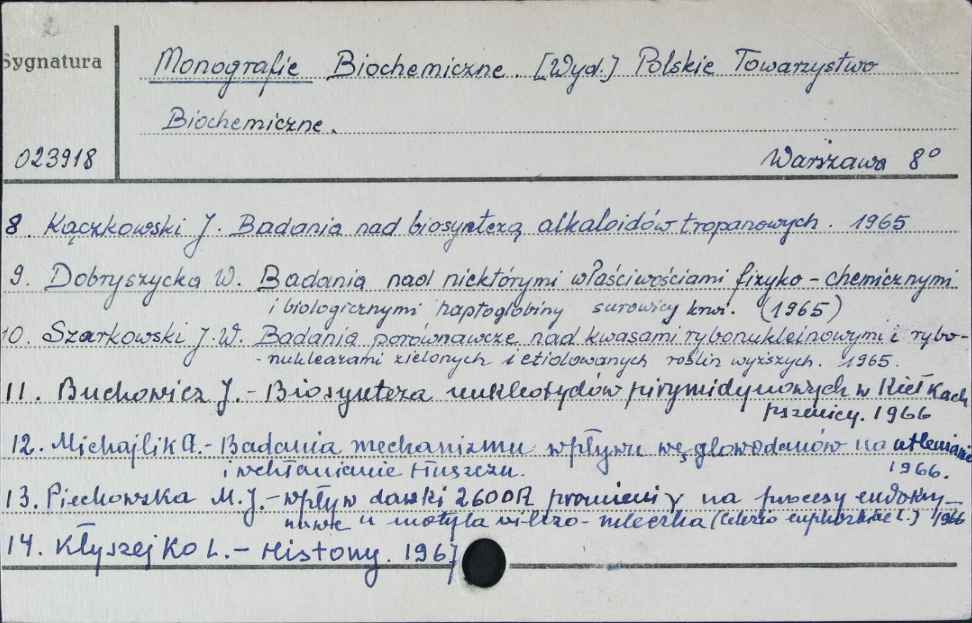 2
Sygnatura
Monografie Biochemiczne. [Wyd.] Polskie Towarzystwo
Biochemiczne.
023918
Warszawa 8°
8. Kączkowski J. Badania nad biosyntezą alkaloidów tropanowych. 1965
9. Dobryszycka W. Badania nad niektórymi właściwościami fizyko-chemicznymi
i biologicznymi haptoglobiny surowicy krwi. (1965)
10. Szarkowski J.W. Badania porównawcze nad kwasami rybonukleinowymi i rybo-
-nukleazami zielonych i etiolowanych roślin wyższych. 1965.
11. Buchowicz J. - Biosynteza nukleotydów pirymidynowych w kiełkach
pszenicy. 1966
12. Michajlik A. - Badania mechanizmu wpływu węglowodanów na utlenianie
i wchłanianie tłuszczu. 1966.
13. Piechowska M.J. - wpływ dawki 2600R promieni γ na procesy endokry-
nowe u motyla wilczo-mleczka (Celerio euphorbiae L.) 1966
14. Kłyszejko L. - Histony. 1967